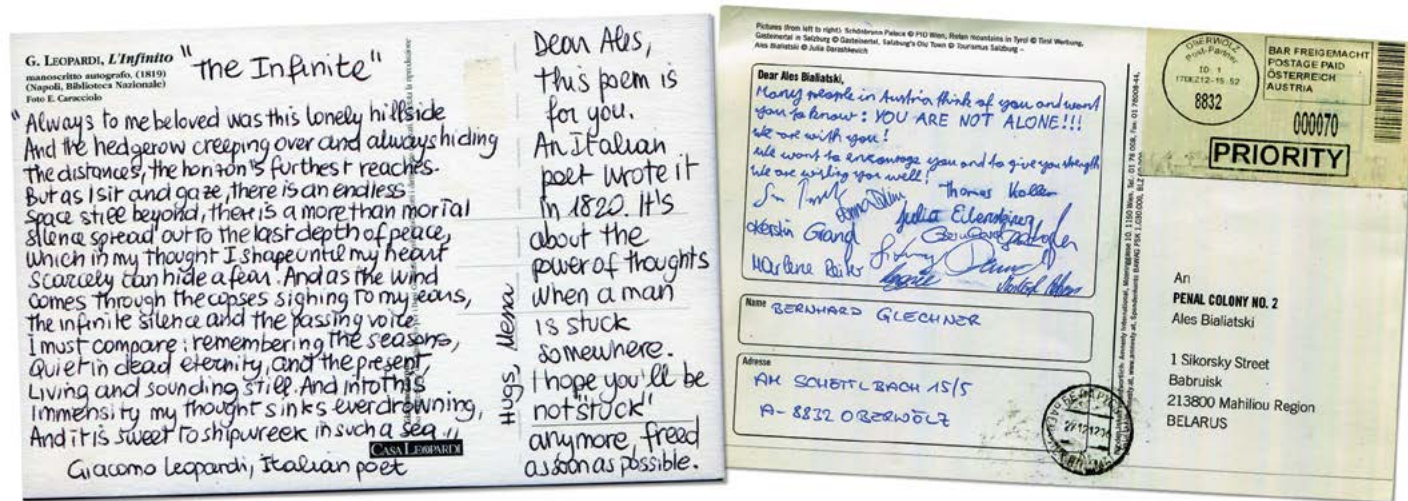 G. LEOPARDI, L'Infinito
manoscritto autografo. (1819)
(Napoli, Biblioteca Nazionale)
Foto E. Caracciolo
"The Infinite"
"Always to me beloved was this lonely hillside
And the hedgerow creeping over and always hiding
The distances, the horizon's furthest reaches.
But as I sit and gaze, there is an endless
Space still beyond, there is a more than mortal
Silence spread out to the last depth of peace,
Which in my thought I shape until my heart
Scarcely can hide a fear. And as the wind
Comes through the copses sighing to my ears,
The infinite silence and the passing voice
I must compare: remembering the seasons,
Quiet in dead eternity, and the present,
Living and sounding still. And into this
Immensity my thought sinks ever drowning,
And it is sweet to shipwreck in such a sea."
Giacomo Leopardi, Italian poet
CASA LEOPARDI
Dear Ales,
this poem is
for you.
An Italian
poet wrote it
in 1820. It's
about the
power of thoughts
when a man
is stuck
somewhere.
I hope you'll be
not "stuck"
anymore, freed
as soon as possible.
Hugs,
Pictures (from left to right): Schönbrunn Palace © PID Wien, Rofan mountains in Tyrol © Tirol Werbung,
Gasteinertal in Salzburg © Gasteinertal, Salzburg's Old Town © Tourismus Salzburg –
Ales Bialiatski © Julia Darashkevich
Dear Ales Bialiatski,
Many people in Austria think of you and want
you to know: YOU ARE NOT ALONE!!!
We are with you!
We want to encourage you and to give you strength
We are wishing you well!
Thomas
Julia
Kerstin
Marlene Reiter
Name
BERNHARD GLECHNER
Adresse
AM SCHÖTTLBACH 15/5
A-8832 OBERWÖLZ
OBERWÖLZ
Post-Partner
ID: 1
8832
BAR FREIGEMACHT
POSTAGE PAID
ÖSTERREICH
AUSTRIA
000070
PRIORITY
An
PENAL COLONY NO. 2
Ales Bialiatski
1 Sikorsky Street
Babruisk
213800 Mahiliou Region
BELARUS